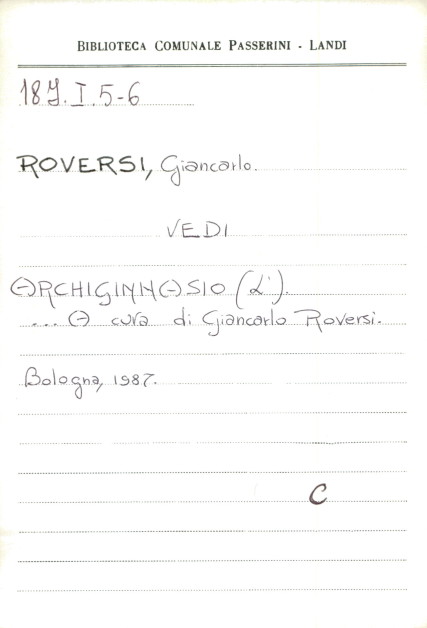 BIBLIOTECA COMUNALE PASSERINI - LANDI
18Y.I.5-6
ROVERSI, Giancarlo.
VEDI
ARCHIGINNASIO (L').
... A cura di Giancarlo Roversi.
Bologna, 1987.
C